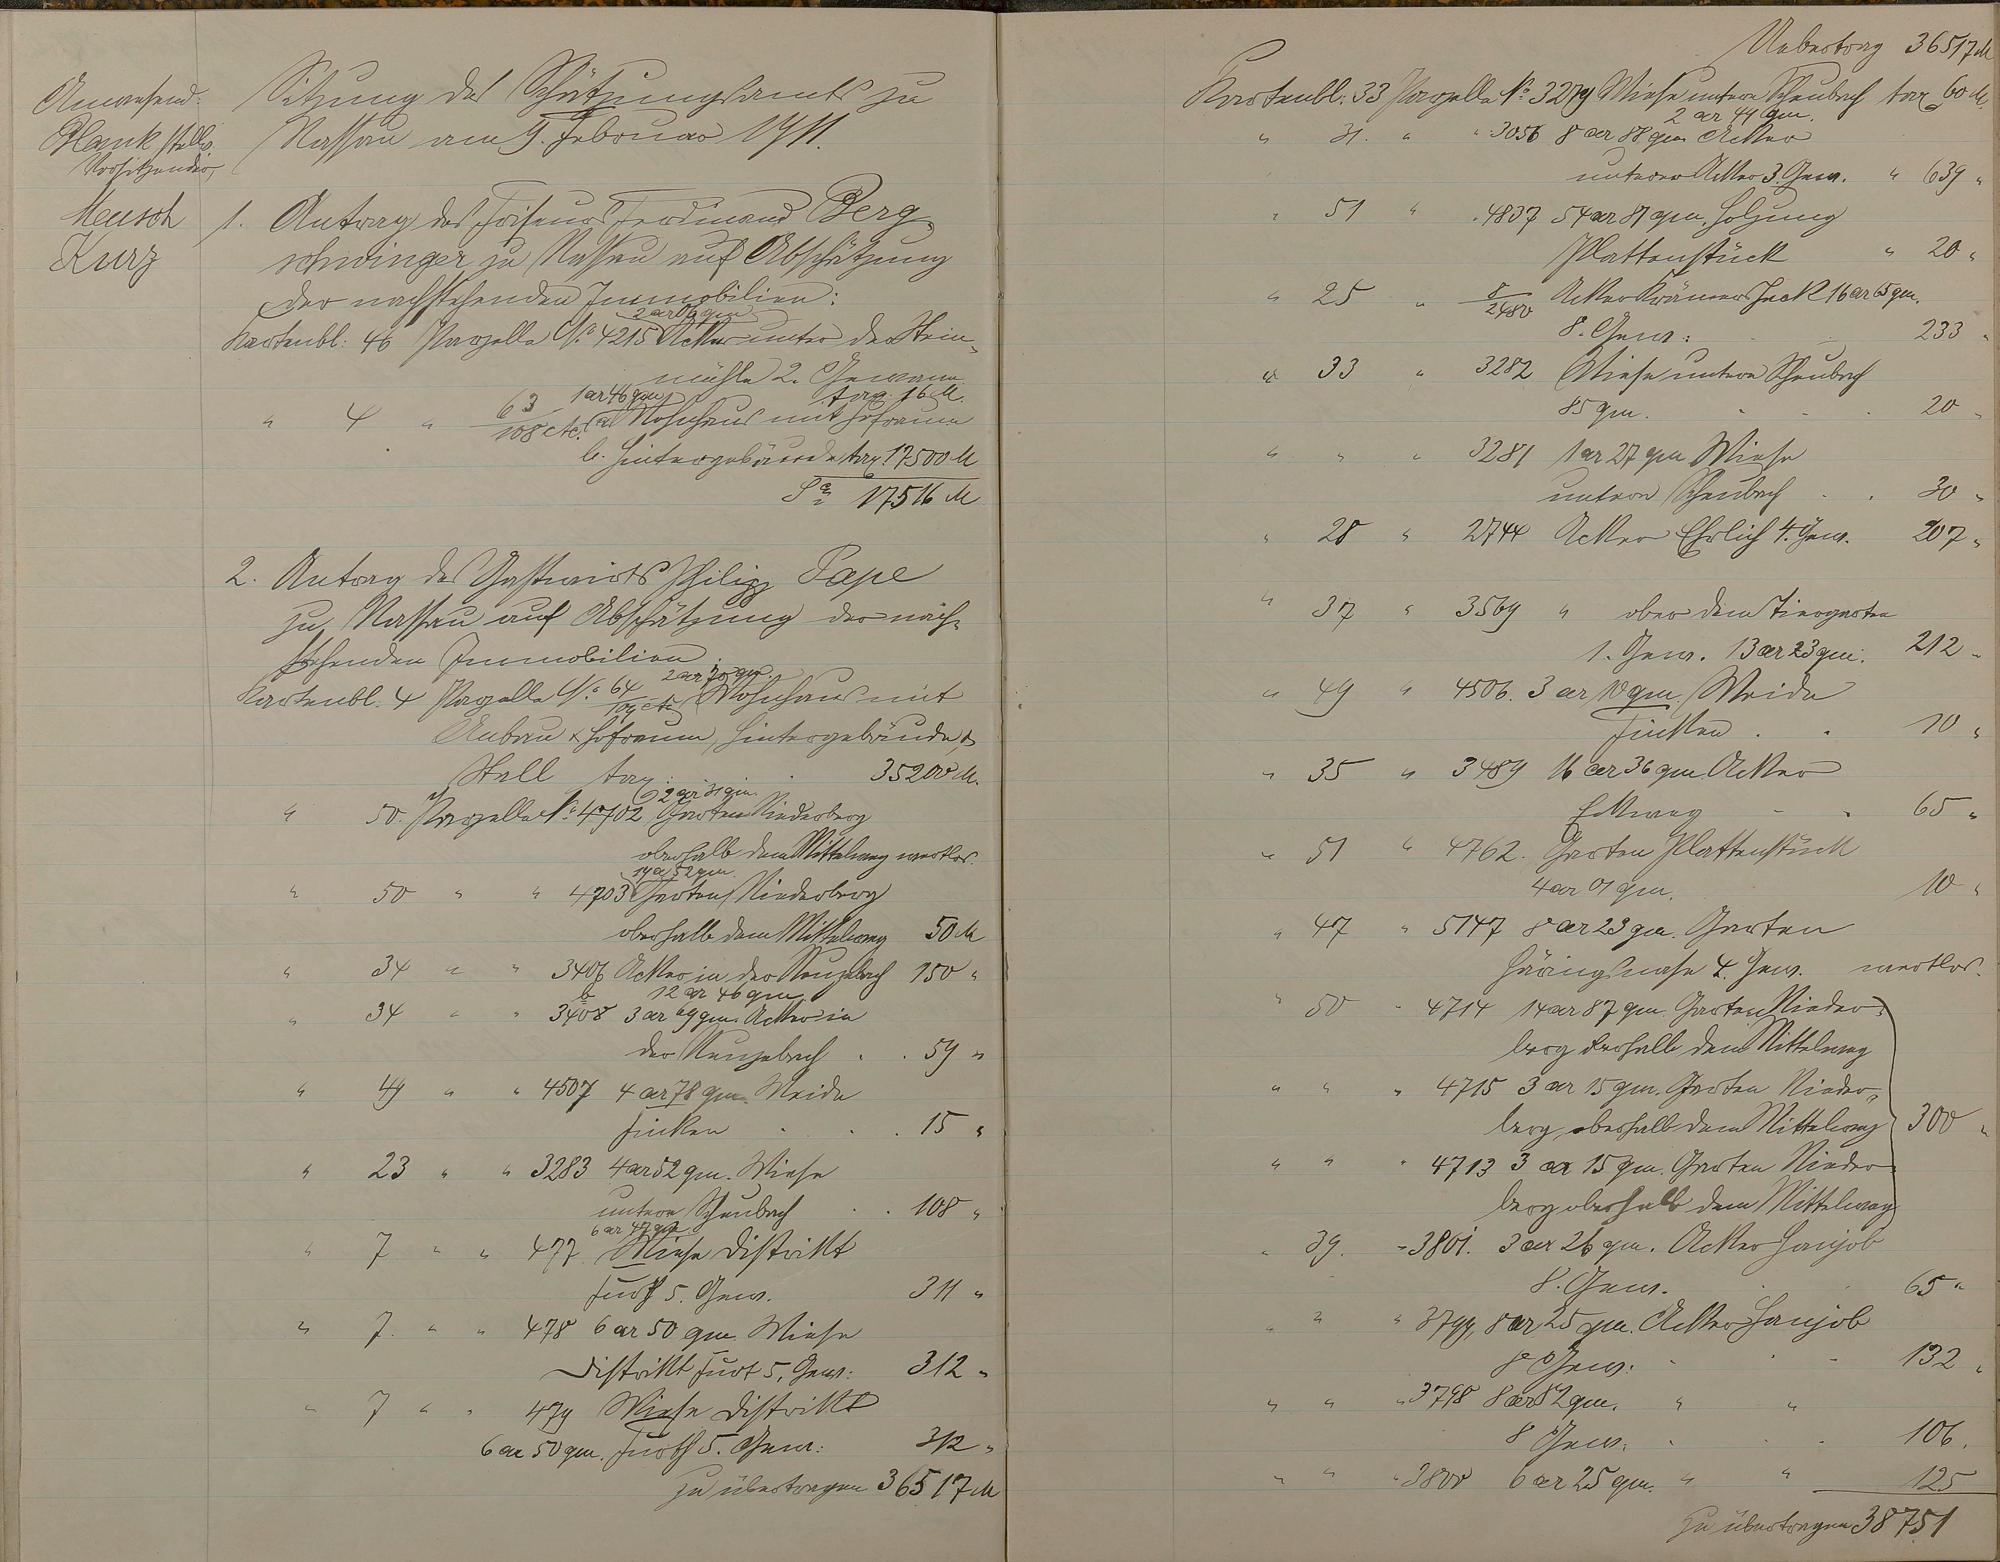 Anwesend:
Plank stellv.
Vorsitzender,
Meusch
Kurz
Sitzung des Schätzungsamts zu
Nassau am 9. Februar 1911.
1. Antrag des Friseurs Ferdinand Berg-
schwinger zu Nassau auf Abschätzung
der nachstehenden Immobilien:
2 ar qm
Kartenbl. 46 Parzelle No 4215 Acker unter der Stein-
mühle 2. Gewann
tax. 16 M.
1 ar 46 qm
" 4 " 63/108 etc. a) Wohnhaus mit Hofraum
b. Hintergebäude tax. 17500 M
Sa 17516 M
2. Antrag des Gastwirts Philipp Pape
zu Nassau auf Abschätzung der nach-
stehenden Immobilien.
2 ar 70 qm
Kartenbl. 4 Parzelle No 64/109 etc. Wohnhaus mit
Anbau & Hofraum, Hintergebäude &
Stall tax. . . 35200 M.
2 ar 31 qm
" 50. Parzelle No 4702 Garten Niederberg
oberhalb dem Mittelweg wertlos.
19 a 52 qm.
" 50 " " 4703 Garten Niederberg
oberhalb dem Mittelweg 50 M
" 34 " " 3406 Acker in der Neuzebach 150 "
12 ar 46 qm
" 34 " " 3408 3 ar 69 qm. Acker in
der Neuzebach . . 59 "
" 49 " " 4507 4 ar 78 qm. Weide
Finken . . . 15 "
" 23 " " 3283 4 ar 52 qm. Wiese
untere Scheubach . . 108 "
6 ar 47 qm
" 7 " " 477 Wiese Distrikt
Furth 5. Gew. 311 "
" 7. " " 478 6 ar 50 qm Wiese
Distrikt Furt 5. Gew: 312 "
" 7 " " 479 Wiese Distrikt
6 ar 50 qm. Furth 5. Gew: 312 "
zu übertragen 36517 M
Uebertrag 36517 M
Kartenbl. 33 Parzelle No 3279 Wiese untere Scheubach tax 60 M.
2 ar 44 qm.
" 31. " " 3056 8 ar 88 qm Acker
unterer Acker 3. Gew. " 639 "
" 51 " " 4837 54 ar 87 qm, Holzung
Plattenstück " 20 "
" 25 " 8/2480 Acker Krämersheck 16 ar 65 qm.
8. Gew: 233 "
" 33 " 3282 Wiese untere Scheubach
85 qm. . . . 20 "
" " " 3281 1 ar 27 qm Wiese
untere Scheubach . . 30 "
" 28 " 2744 Acker Ehrlich 4. Gew. 207 "
" 37 " 3569 " ober dem Tiergarten
1. Gew. 13 ar 23 qm. 212 "
" 49 " 4506. 3 ar 10 qm. Weide
Finken . . 10 "
" 35 " 3489 16 ar 36 qm. Acker
Eckweg - . 65 "
" 51 " 4762. Garten Plattenstück
4 ar 01 qm. 10 "
" 47 " 5147 8 ar 23 qm. Garten
Häringsnase 4. Gew. wertlos.
" 50 " 4714 14 ar 87 qm. Garten Nieder-
berg oberhalb dem Mittelweg
" " " 4715 3 ar 15 qm. Garten Nieder-
berg, oberhalb dem Mittelweg 300 "
" " " 4713 3 ar 15 qm. Garten Nieder-
berg oberhalb dem Mittelweg
" 39. " 3801. 3 ar 26 qm. Acker Hanjob
8. Gew. 65 "
" " " 3799, 8 ar 25 qm. Acker Hanjob
8 Gew: . . 132 "
" " " 3798 8 ar 82 qm. " "
8 Gew: . . 106.
" " " 3800 6 ar 25 qm. " " 125
zu übertragen 38751